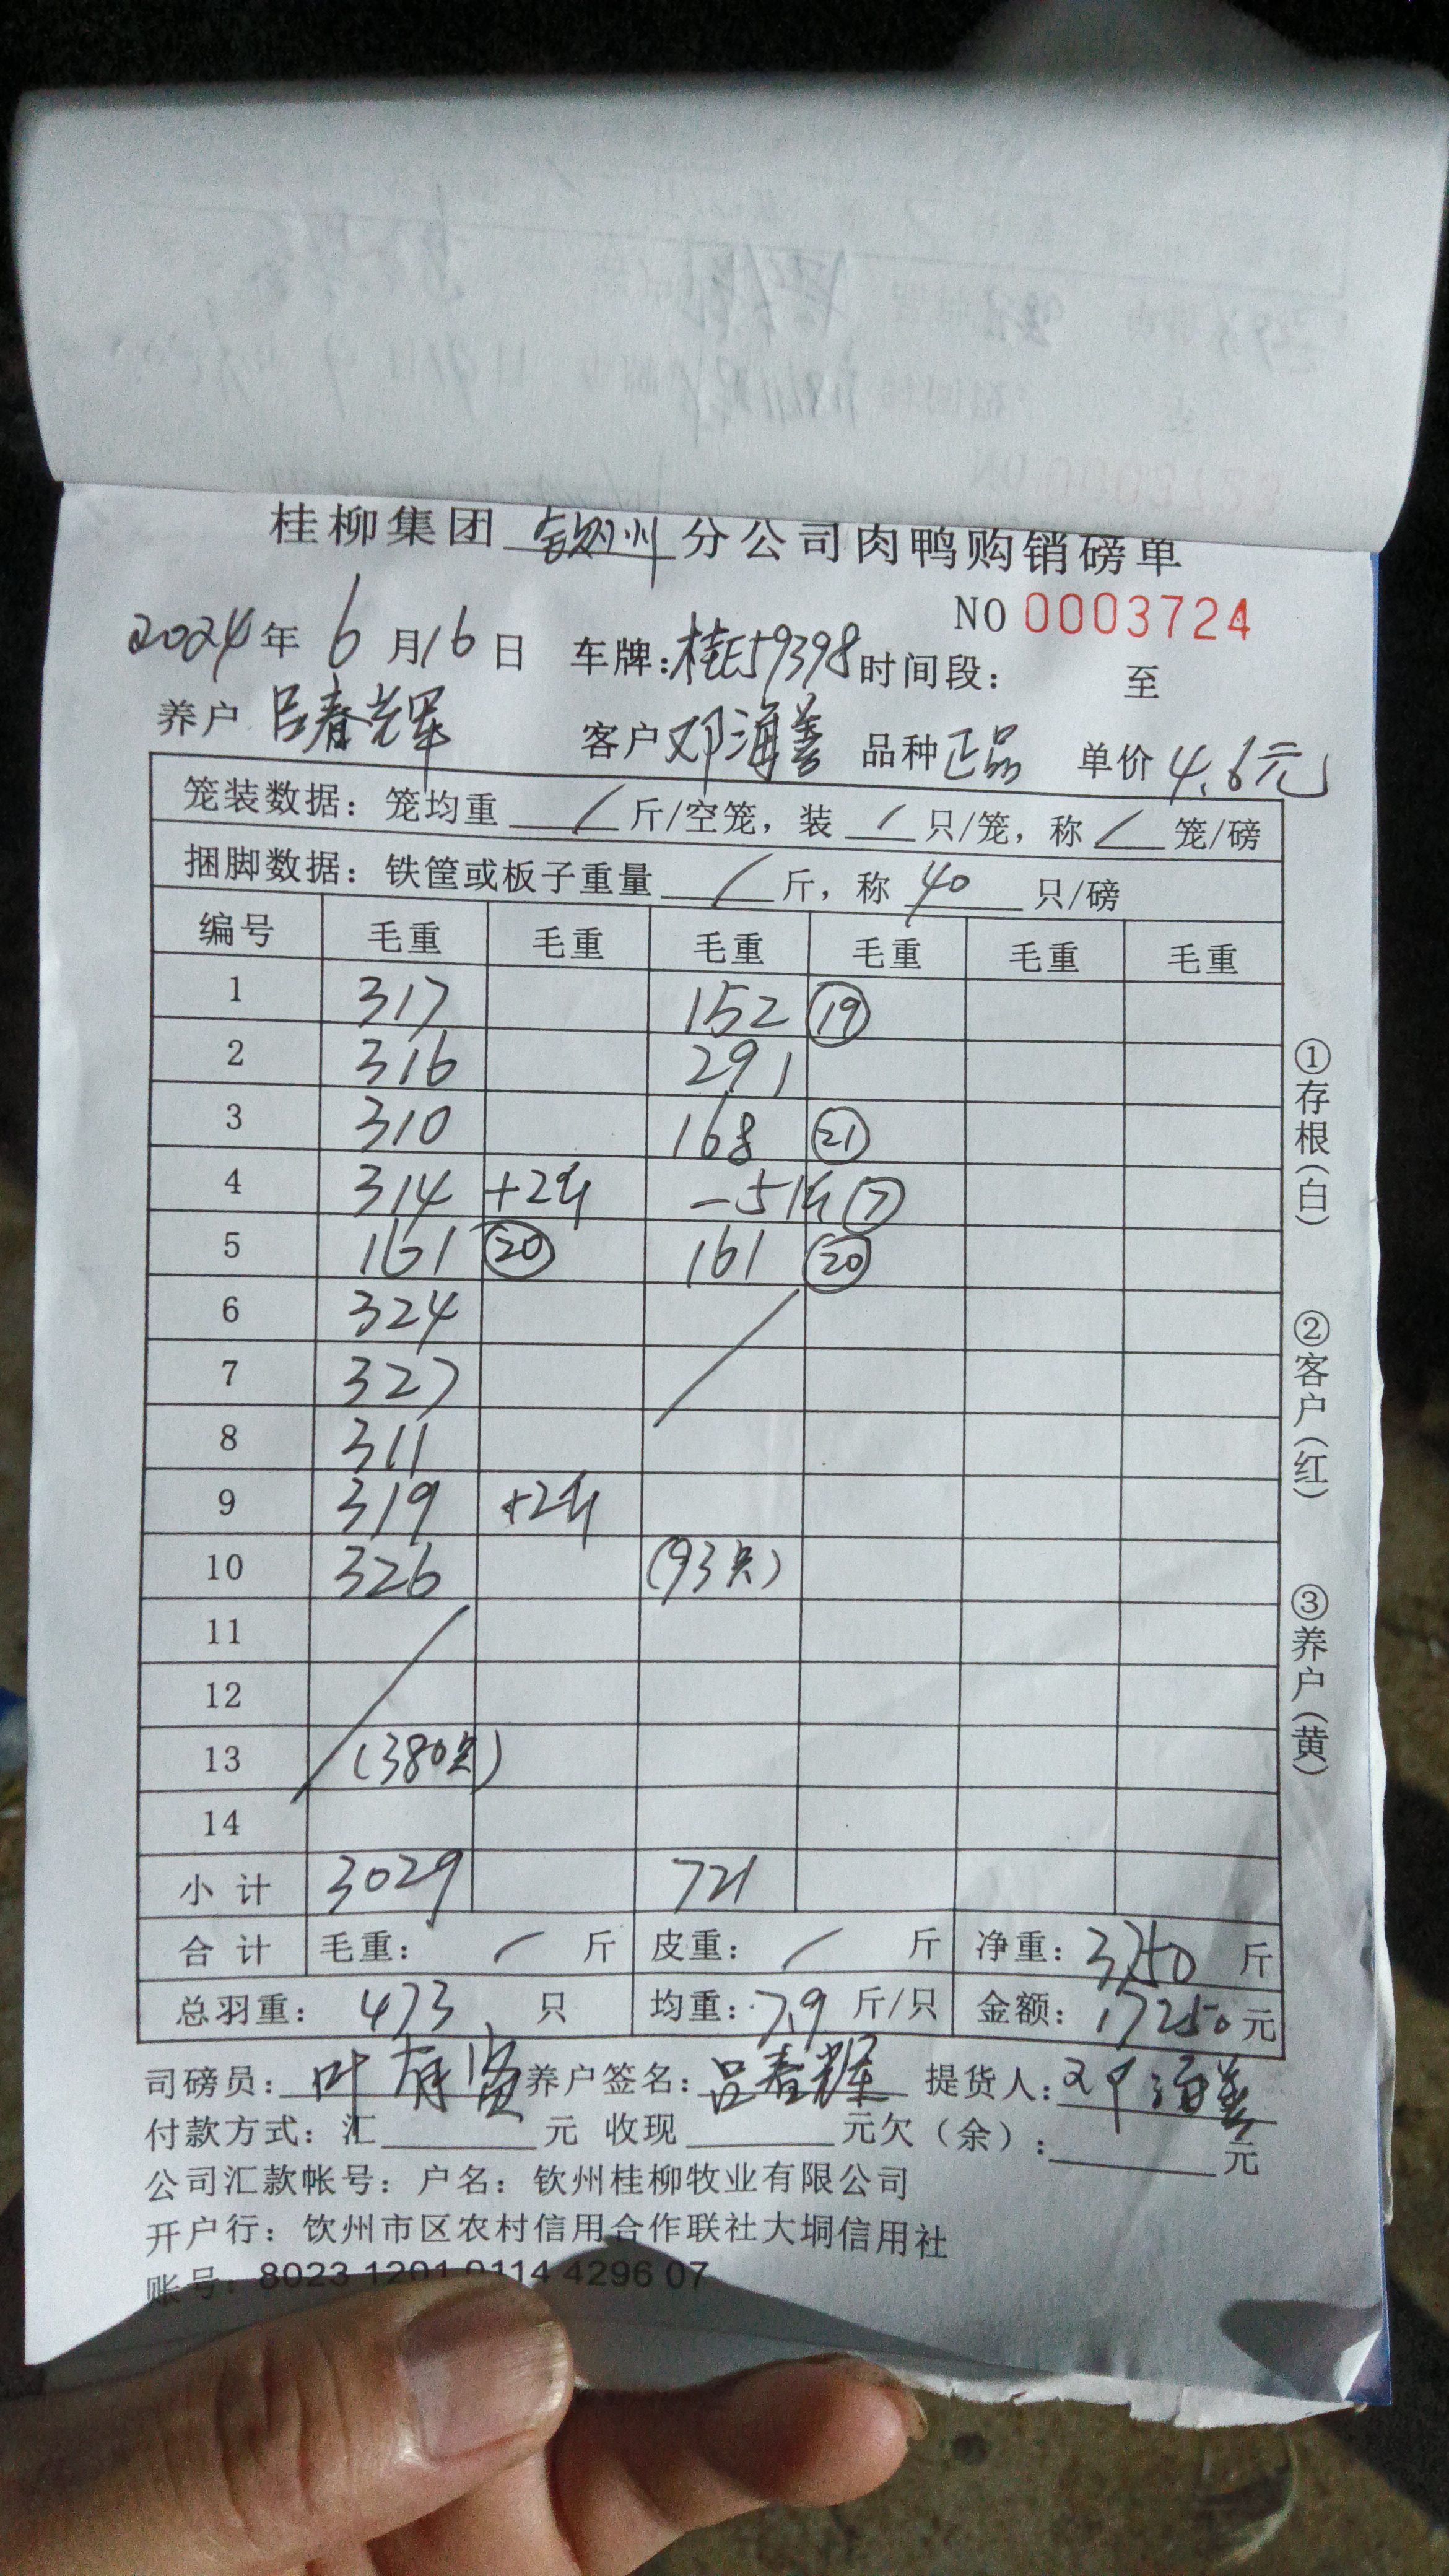 桂柳集团 钦州 分公司肉鸭购销磅单
NO 0003724
2024年 6月16日 车牌:桂E59398 时间段: 至
养户 吕春辉 客户 邓海善 品种 正品 单价 4.6元
笼装数据: 笼均重 / 斤/空笼, 装 / 只/笼, 称 / 笼/磅
捆脚数据: 铁筐或板子重量 / 斤, 称 40 只/磅
编号 毛重 毛重 毛重 毛重 毛重 毛重
1 317 152 ⑲
2 316 291
3 310 168 ㉑
4 314 +2斤 -51斤 ⑦
5 161 ⑳ 161 ⑳
6 324
7 327
8 311
9 319 +2斤
10 326 (93只)
11
12
13 (380只)
14
小 计 3029 721
合 计 毛重: / 斤 皮重: / 斤 净重: 3750 斤
总羽重: 473 只 均重: 7.9 斤/只 金额: 17250元
司磅员: 叶有贤 养户签名: 吕春辉 提货人: 邓海善
付款方式: 汇 元 收现 元欠(余): 元
公司汇款帐号: 户名: 钦州桂柳牧业有限公司
开户行: 钦州市区农村信用合作联社大垌信用社
账号: 8023 1201 0114 4296 07
①存根(白)
②客户(红)
③养户(黄)